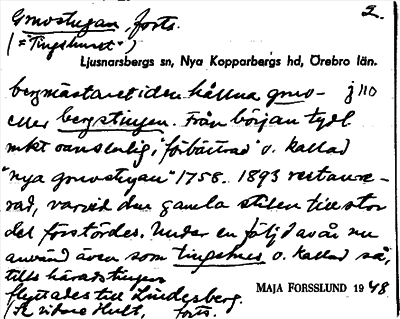 Gruvstugan, forts. 2.
(="Tingshuset")
Ljusnarsbergs sn, Nya Kopparbergs hd, Örebro län.
bergmästaretiden hållna gruv- j 110
eller bergstingen. Från början tydl
mkt oansenlig, "förbättrad" o. kallad
"nya gruvstugan" 1758. 1893 restaure-
rad, varvid den gamla stilen till stor
del förstördes. Under en följd av år nu
använd även som tingshus o. kallad så,
tills häradstingen
flyttades till Lindesberg.
MAJA FORSSLUND 1948
/Se vidare Hult, forts.